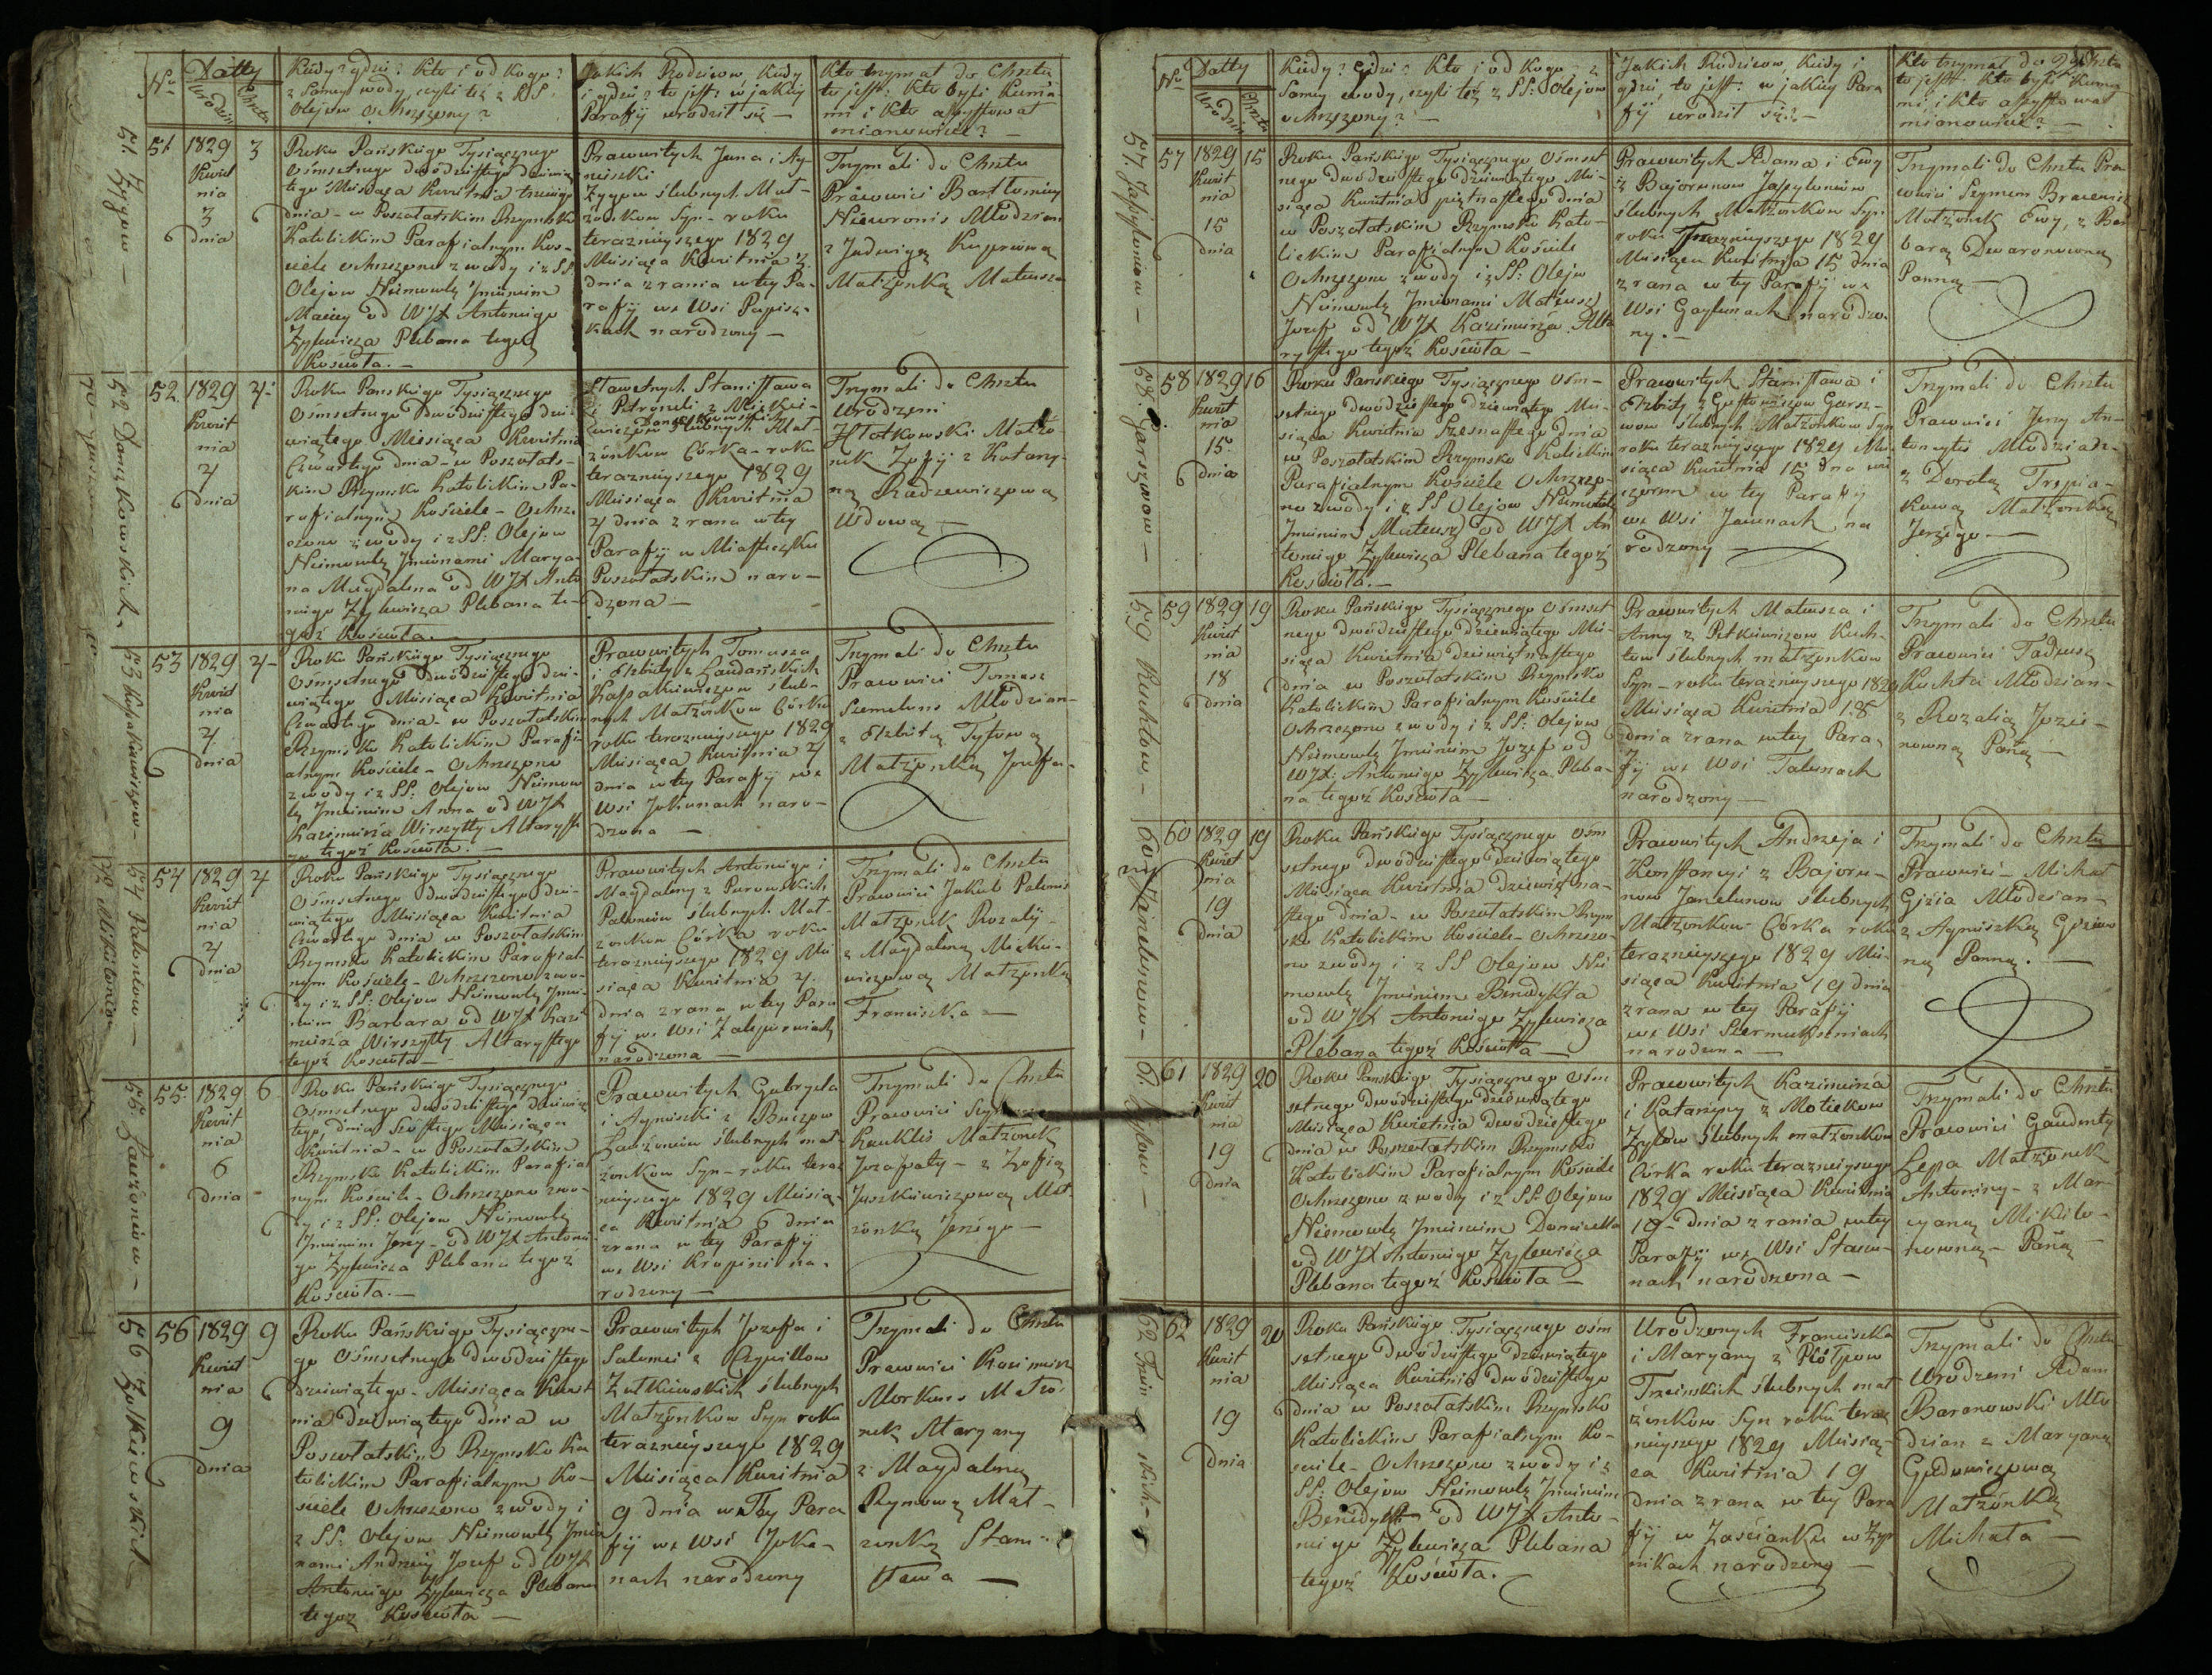 Nro
Datty
Urodzin
Chrztu
Kiedy? gdzie? Kto i od kogo?
z Samey wody, czyli też z SS:
Olejow ochrzczony?
Jakich Rodzicow, kiedy
i gdzie? to jest: w jakiey
Parafij urodził się —
Kto trzymał do Chrztu
to jest: Kto byli Kuma
mi i kto assystował
mianowicie? —
51 Zygow —
51
1829
Kwiet
nia
3
dnia
3
Roku Pańskiego Tysiącznego
Ośmsetnego dwódziestego dziewią
tego Miesiąca Kwietnia trzeciego
dnia — w Poszołatskim Rzymsko
Katolickim Parafialnym Kos-
ciele ochrzczono z wody i z SS
Olejow Niemowlę Jmieniem
Maciey od WJX Antoniego
Zylewicza Plebana tegoż
Kościoła. —
Prawowitych Jana i Ag-
nieszki
Zygow ślubnych Mał-
żonkow Syn — roku
teraznieyszego 1829
Miesiąca Kwietnia 3
dnia z rania w tey Pa-
rafij we Wsi Papisz-
kach narodzony —
Trzymali do Chrztu
Prawowici Bartłomiey
Niewronis Młodzian
z Jadwigą Kuprewną
Małżonką Mateusza
52 Danczkowskich
52
1829
Kwiet
nia
4
dnia
4
Roku Panskiego Tysiącznego
Ośmsetnego Dwódziestego dzie-
wiątego Miesiąca Kwietnia
Czwartego dnia — w Poszołats-
kim Rzymsko Katolickim Pa-
rafialnym Kościele — Ochrz-
czono z wody i z SS: Olejow
Niemowlę Jmionami Marya-
na Magdalena od WJX Anto
niego Zylewicza Plebana te-
goż Kościoła. —
Sławetnych Stanisława
i Petroneli z Mickie-
Danczkowskich
wiczow ślubnych Mał-
żonkow Córka — roku
teraznieyszego 1829
Miesiąca Kwietnia
4 dnia z rana w tey
Parafij w Miasteczku
Poszołatskim naro-
dzona —
Trzymali do Chrztu
Urodzeni
Hłotkowski Małżo
nek Zofij z Katarzy-
ną Radziewiczową
Wdową —
53 Kaspakiewiczow —
53
1829
Kwiet
nia
4
dnia
4
Roku Pańskiego Tysiącznego
Ośmsetnego Dwódziestego dzie-
wiątego Miesiąca Kwietnia
Czwartego dnia — w Poszołatskim
Rzymsko Katolickim Parafi
alnym Kościele — Ochrzczono
z wody i z SS: Olejow Niemow
lę Jmieniem Anna od WJX
Kazimierza Wirszyłły Altarysty
tegoż Kościoła. —
Prawowitych Tomasza
i Elżbiety z Laudańskich
Kaspakiewiczow ślub-
nych Małżonkow Córka
roku teraznieyszego 1829
Miesiąca Kwietnia 4
dnia w tey Parafij we
Wsi Jokunach naro-
dzona —
Trzymali do Chrztu
Prawowici Tomasz
Szemeluns Młodzian
z Elżbietą Tylową
Małżonką Jozefa —
54 Palonow —
72 Mikitonów
54
1829
Kwiet
nia
4
dnia
4
Roku Pańskiego Tysiącznego
Ośmsetnego dwódziestego dzie-
wiątego Miesiąca Kwietnia
Czwartego dnia w Poszołatskim
Rzymsko Katolickim Parafial-
nym Kościele — Ochrzczono z wo-
dy i z SS: Olejow Niemowlę Jmie-
niem Barbara od WJX Kazi
mierza Wirszyłły Altarystego
tegoż Kościoła —
Prawowitych Antoniego i
Magdaleny z Purowskich
Palonow ślubnych Mał-
żonkow Córka roku
teraznieyszego 1829 Mie
siąca Kwietnia 4
dnia z rana w tey Para
fij we Wsi
narodzona —
Trzymali do Chrztu
Prawowici Jakub Palonis
Małżonek Rozalij
z Magdaleną Mickie-
wiczową Małżonką
Franciszka —
55 Lauzoniow —
55
1829
Kwiet
nia
6
dnia
6
Roku Pańskiego Tysiącznego
Ośmsetnego dwódziestego dziewią
tego dnia szóstego Miesiąca
Kwietnia — w Poszołatskim
Rzymsko Katolickim Parafial
nym Kościele — Ochrzczono z wo-
dy i z SS: Olejow Niemowlę
Jmieniem Jerzy — od WJX Antonie
go Zylewicza Plebana tegoż
Kościoła. —
Prawowitych Gabryela
i Agnieszki z Buczow
Lauzoniow ślubnych mał-
żonkow Syn — roku teraz
nieyszego 1829 Miesią-
ca Kwietnia 6 dnia
z rana w tey Parafij
we Wsi Kropizi na-
rodzony —
Trzymali do Chrztu
Prawowici
Kauklis Małżonek
Jozafaty — z Zofią
Juszkiewiczową Mał
żonką Jerzego —
56 Zutkiewskich
56
1829
Kwiet
nia
9
dnia
9
Roku Pańskiego Tysiączne-
go Ośmsetnego dwódziestego
dziewiątego — Miesiąca Kwiet
nia dziewiątego dnia w
Poszołatskim Rzymsko Ka
tolickim Parafialnym Ko-
ściele Ochrzczono z wody i
z SS: Olejow Niemowlę Jmio
nami Andrzey Jozef od WJX
Antoniego Zylewicza Plebana
tegoz Kościoła —
Prawowitych Jozefa i
Salomei z Rypillow
Zutkiewskich ślubnych
Małżonkow Syn roku
teraznieyszego 1829
Miesiąca Kwietnia
9 dnia w Tey Para
fij we Wsi Joku-
nach narodzony
Trzymali do Chrztu
Prawowici Kazimierz
Morkuns Małżo-
nek Maryany
z Magdaleną
Rymową Mał-
żonką Stani-
sława —
Nro
Datty
Urodzin
Chrztu
Kiedy? Gdzie? Kto i od kogo z
Samey wody, czyli też z SS: Olejow
ochrzczony? —
Jakich Rodzicow, kiedy i
gdzie, to jest: w jakiey Para
fij urodził się? —
Kto trzymał do Chrztu
to jest: kto byli Kuma
mi, i kto assystował
mianowicie? —
57. Jaszyloniow —
57
1829
Kwiet
nia
15
dnia
15
Roku Pańskiego Tysiącznego Ośmset
nego dwódziestego dziewiątego Mie-
siąca Kwietnia piętnastego dnia
w Poszołatskim Rzymsko Kato-
lickim Parafialnym Kościele
Ochrzczono z wody i z SS: Olejw
Niemowlę Jmionami Mateusz
Jozef od WJX Kazimierza Alta
rystego tegoż Kościoła —
Prawowitych Adama i Ewy
z Bujorunow Jaszyloniow
ślubnych Małżonkow Syn
roku Teraznieyszego 1829
Miesiąca Kwietnia 15 dnia
z rana w tey Parafij we
Wsi Gaylunach narodzo-
ny. —
Trzymali do Chrztu Pra
wowici Szymon Brucewicz
Małżonek Ewy, z Bar
barą Dwaronowną
Panną —
58. Garszwow —
58
1829
Kwiet
nia
15
dnia
16
Roku Pańskiego Tysiącznego Ośm-
setnego dwódziestego dziewiątego Mie-
siąca Kwietnia Szesnastego dnia
w Poszołatskim Rzymsko Katolickim
Parafialnym Kościele Ochrzczo-
no z wody i z SS Olejow Niemowlę
Jmieniem Mateusz od WJX An
toniego Zylewicza Plebana tegoż
Kościoła. —
Prawowitych Stanisława i
Elżbiety z Garsz-
wow ślubnych Małżonkow Syn
roku teraznieyszego 1829 Mie-
siąca Kwietnia 15 dnia wie
czorem w tey Parafij
we Wsi Jaunach na
rodzony —
Trzymali do Chrztu
Prawowici Jerzy An-
tonytis Młodzian
z Dorotą Trepia-
kową Małżonką
Jerzego —
59 Kuchtow —
59
1829
Kwiet
nia
18
dnia
19
Roku Pańskiego Tysiącznego Ośmset
nego dwódziestego dziewiątego Mie-
siąca Kwietnia dziewiętnastego
dnia w Poszołatskim Rzymsko
Katolickim Parafialnym Kościele
Ochrzczono z wody i z SS: Olejow
Niemowlę Jmieniem Jozef od
WJX: Antoniego Zylewicza Pleba-
na tegoż Kościoła —
Prawowitych Mateusza i
Anny z Petkiewiczow Kuch-
tow ślubnych małżonkow
Syn — roku teraznieyszego 1829
Miesiąca Kwietnia 18
dnia z rana w tey Para-
fij we Wsi Talunach
narodzony —
Trzymali do Chrztu
Prawowici Tadeusz
Kuchta Młodzian —
z Rozalią Jozie-
nowną Panną —
60. Janelunow —
60
1829
Kwiet
nia
19
dnia
19
Roku Pańskiego Tysiącznego Ośm
setnego dwódziestego dziewiątego
Miesiąca Kwietnia dziewiętna-
stego dnia — w Poszołatskim Rzym
sko Katolickim Kościele — Ochrzczo-
no z wody i z SS Olejow Nie
mowlę Jmieniem Benedykta
od WJX Antoniego Zylewicza
Plebana tegoż Kościoła —
Prawowitych Andrzeja i
Konstancyi z Bajoru-
now Janelunow ślubnych
Małżonkow Córka roku
teraznieyszego 1829 Mie-
siąca Kwietnia 19 dnia
z rana w tey Parafij
we Wsi Szermukszniach
narodzona —
Trzymali do Chrztu
Prawowici — Michał
Gizia Młodzian —
z Agnieszką Giziow
ną Panną. —
61. Zylow —
61
1829
Kwiet
nia
19
dnia
20
Roku Panskiego Tysiącznego Ośm
setnego dwódziestego dziewiątego
Miesiąca Kwietnia dwódziestego
dnia w Poszołatskim Rzymsko
Katolickim Parafialnym Kościele
Ochrzczono z wody i z SS. Olejow
Niemowlę Jmieniem Domicella
od WJX Antoniego Zylewicza
Plebana tegoż Kościoła —
Prawowitych Kazimierza
i Katarzyny z Motiekow
Zylow ślubnych małżonkow
Córka roku teraznieyszego
1829 Miesiąca Kwietnia
19 — dnia z rania w tey
Parafij we Wsi Staszu-
nach narodzona —
Trzymali do Chrztu
Prawowici Gaudenty
Lepa Małżonek
Antoniny — z Mar-
cyaną Mikito-
nowną — Panną —
62 Trzcinskich —
62
1829
Kwiet
nia
19
dnia
20
Roku Pańskiego Tysiącznego ośm
setnego dwódziestego dziewiątego
Miesiąca Kwietnia dwódziestego
dnia w Poszołatskim Rzymsko
Katolickim Parafialnym Ko-
ściele — Ochrzczono z wody i z
SS: Olejow Niemowlę Jmieniem
Benedykt od WJX Anto-
niego Zylewicza Plebana
tegoż Kościoła. —
Urodzonych Franciszka
i Maryany z
Trzcinskich ślubnych mał
żonkow Syn roku teraz
nieyszego 1829 Miesią-
ca Kwietnia 19
dnia z rana w tey Para
fij w Zaścianku
narodzony —
Trzymali do Chrztu
Urodzeni Adam
Baranowski Mło
dzian z Maryaną
Giedowiczową
Małżonką
Michała —